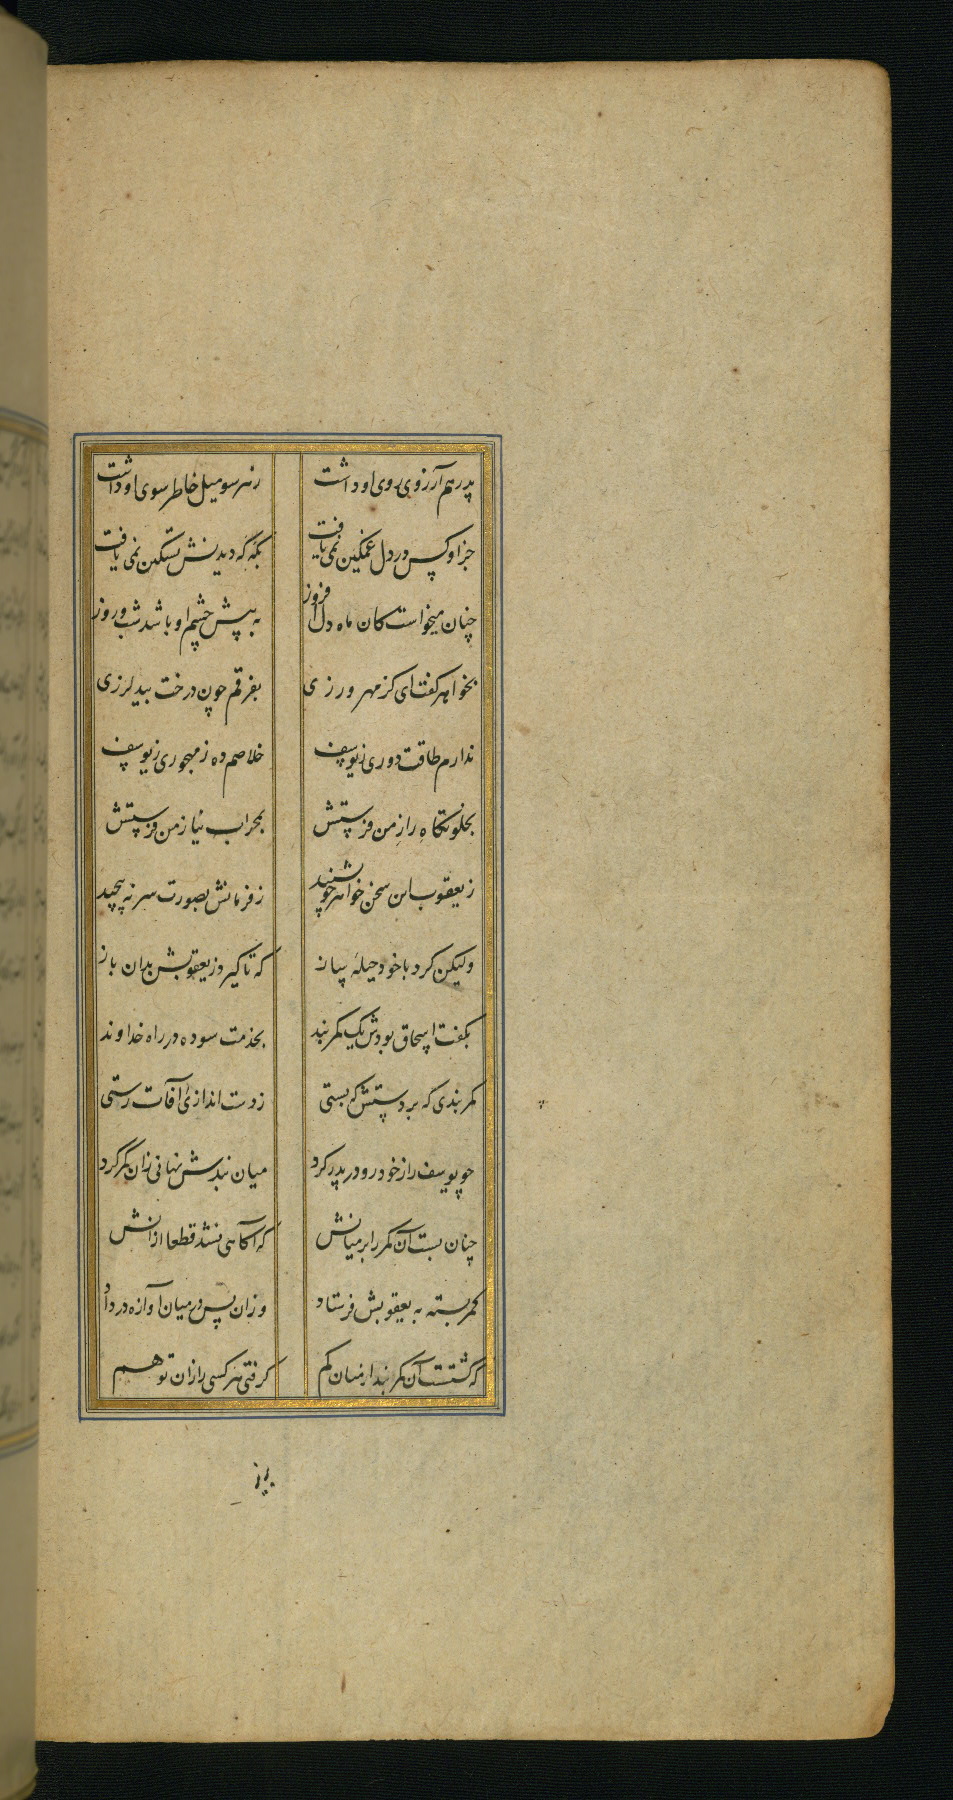 پدر هم آرزوی روی او داشت ز هر سو میل خاطر سوی او داشت
جز او کس در دل غمگین نمی یافت بگه گه دیدنش تسکین نمی یافت
چنان میخواست کان ماه دل افروز به پیش چشم او باشد شب و روز
بخواهر گفت ای کز مهر ورزی بفرقم چون درخت بید لرزی
ندارم طاقت دوری ز یوسف خلاصم ده ز مهجوری ز یوسف
بخلوتگاه راز من فرستش بمحراب نیاز من فرستش
ز یعقوب این سخن خواهر چو بشنید ز فرمانش بصورت سر نه پیچید
ولیکن کرد با خود حیلهٔ ساز که تا گیرد ز یعقوبش بدان باز
بکفت اسحاق بودش یک کمربند بخدمت سوده در راه خداوند
کمربندی که بر دستش که بستی ز دست اندازی آفات رستی
چو یوسف را ز خود رو در پدر کرد میان بندش نهانی زان کمر کرد
چنان بست آن کمر را بر میانش که آگاهی نشد قطعا ازانش
کمر بسته به یعقوبش فرستاد وزان پس در میان آوازه در داد
که گشتست آن کمربند از میان کم گرفتی هر کسی را زان توهم